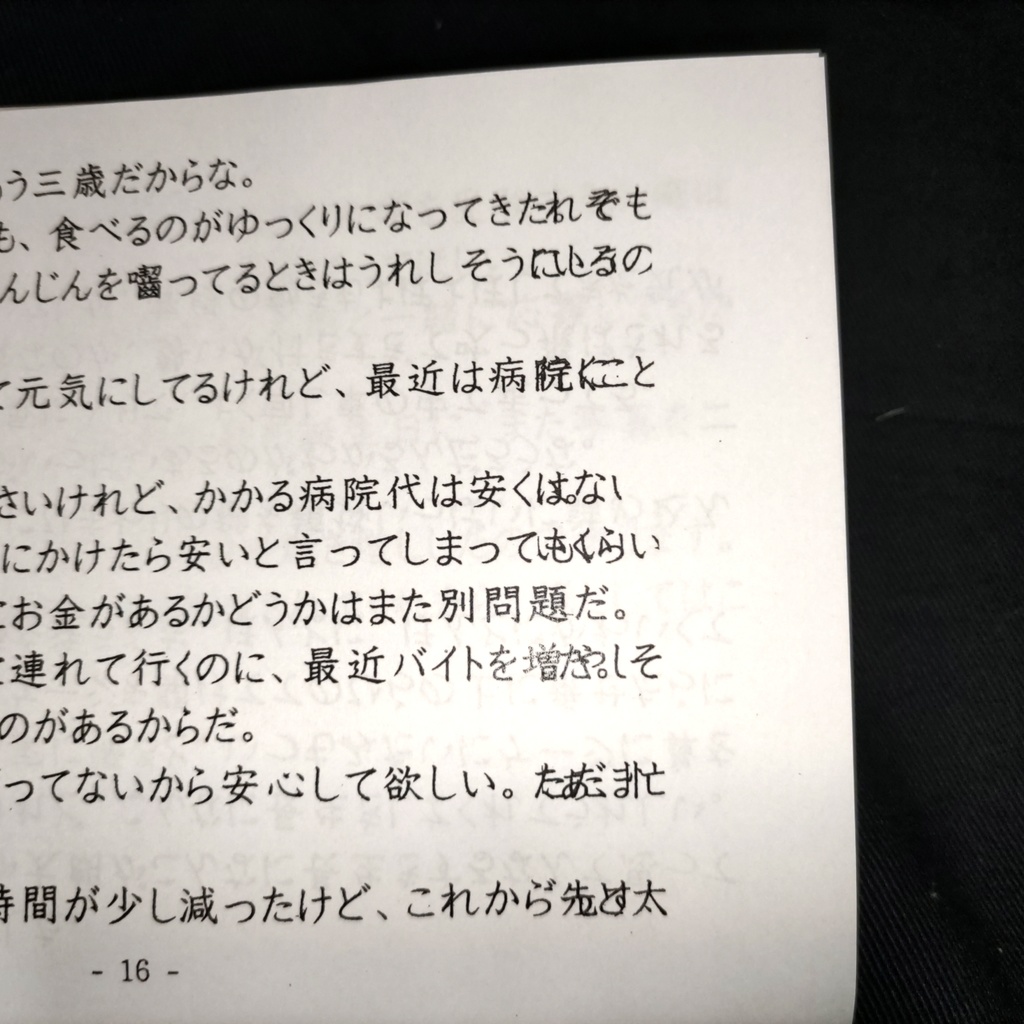 う三歳だからな。
も、食べるのがゆっくりになってきた
んじんを囓ってるときはうれしそうに
て元気にしてるけれど、最近は病院
さいけれど、かかる病院代は安く
にかけたら安いと言ってしまって
にお金があるかどうかはまた別問題だ。
て連れて行くのに、最近バイトを増
のがあるからだ。
ってないから安心して欲しい。
時間が少し減ったけど、これから
- 16 -